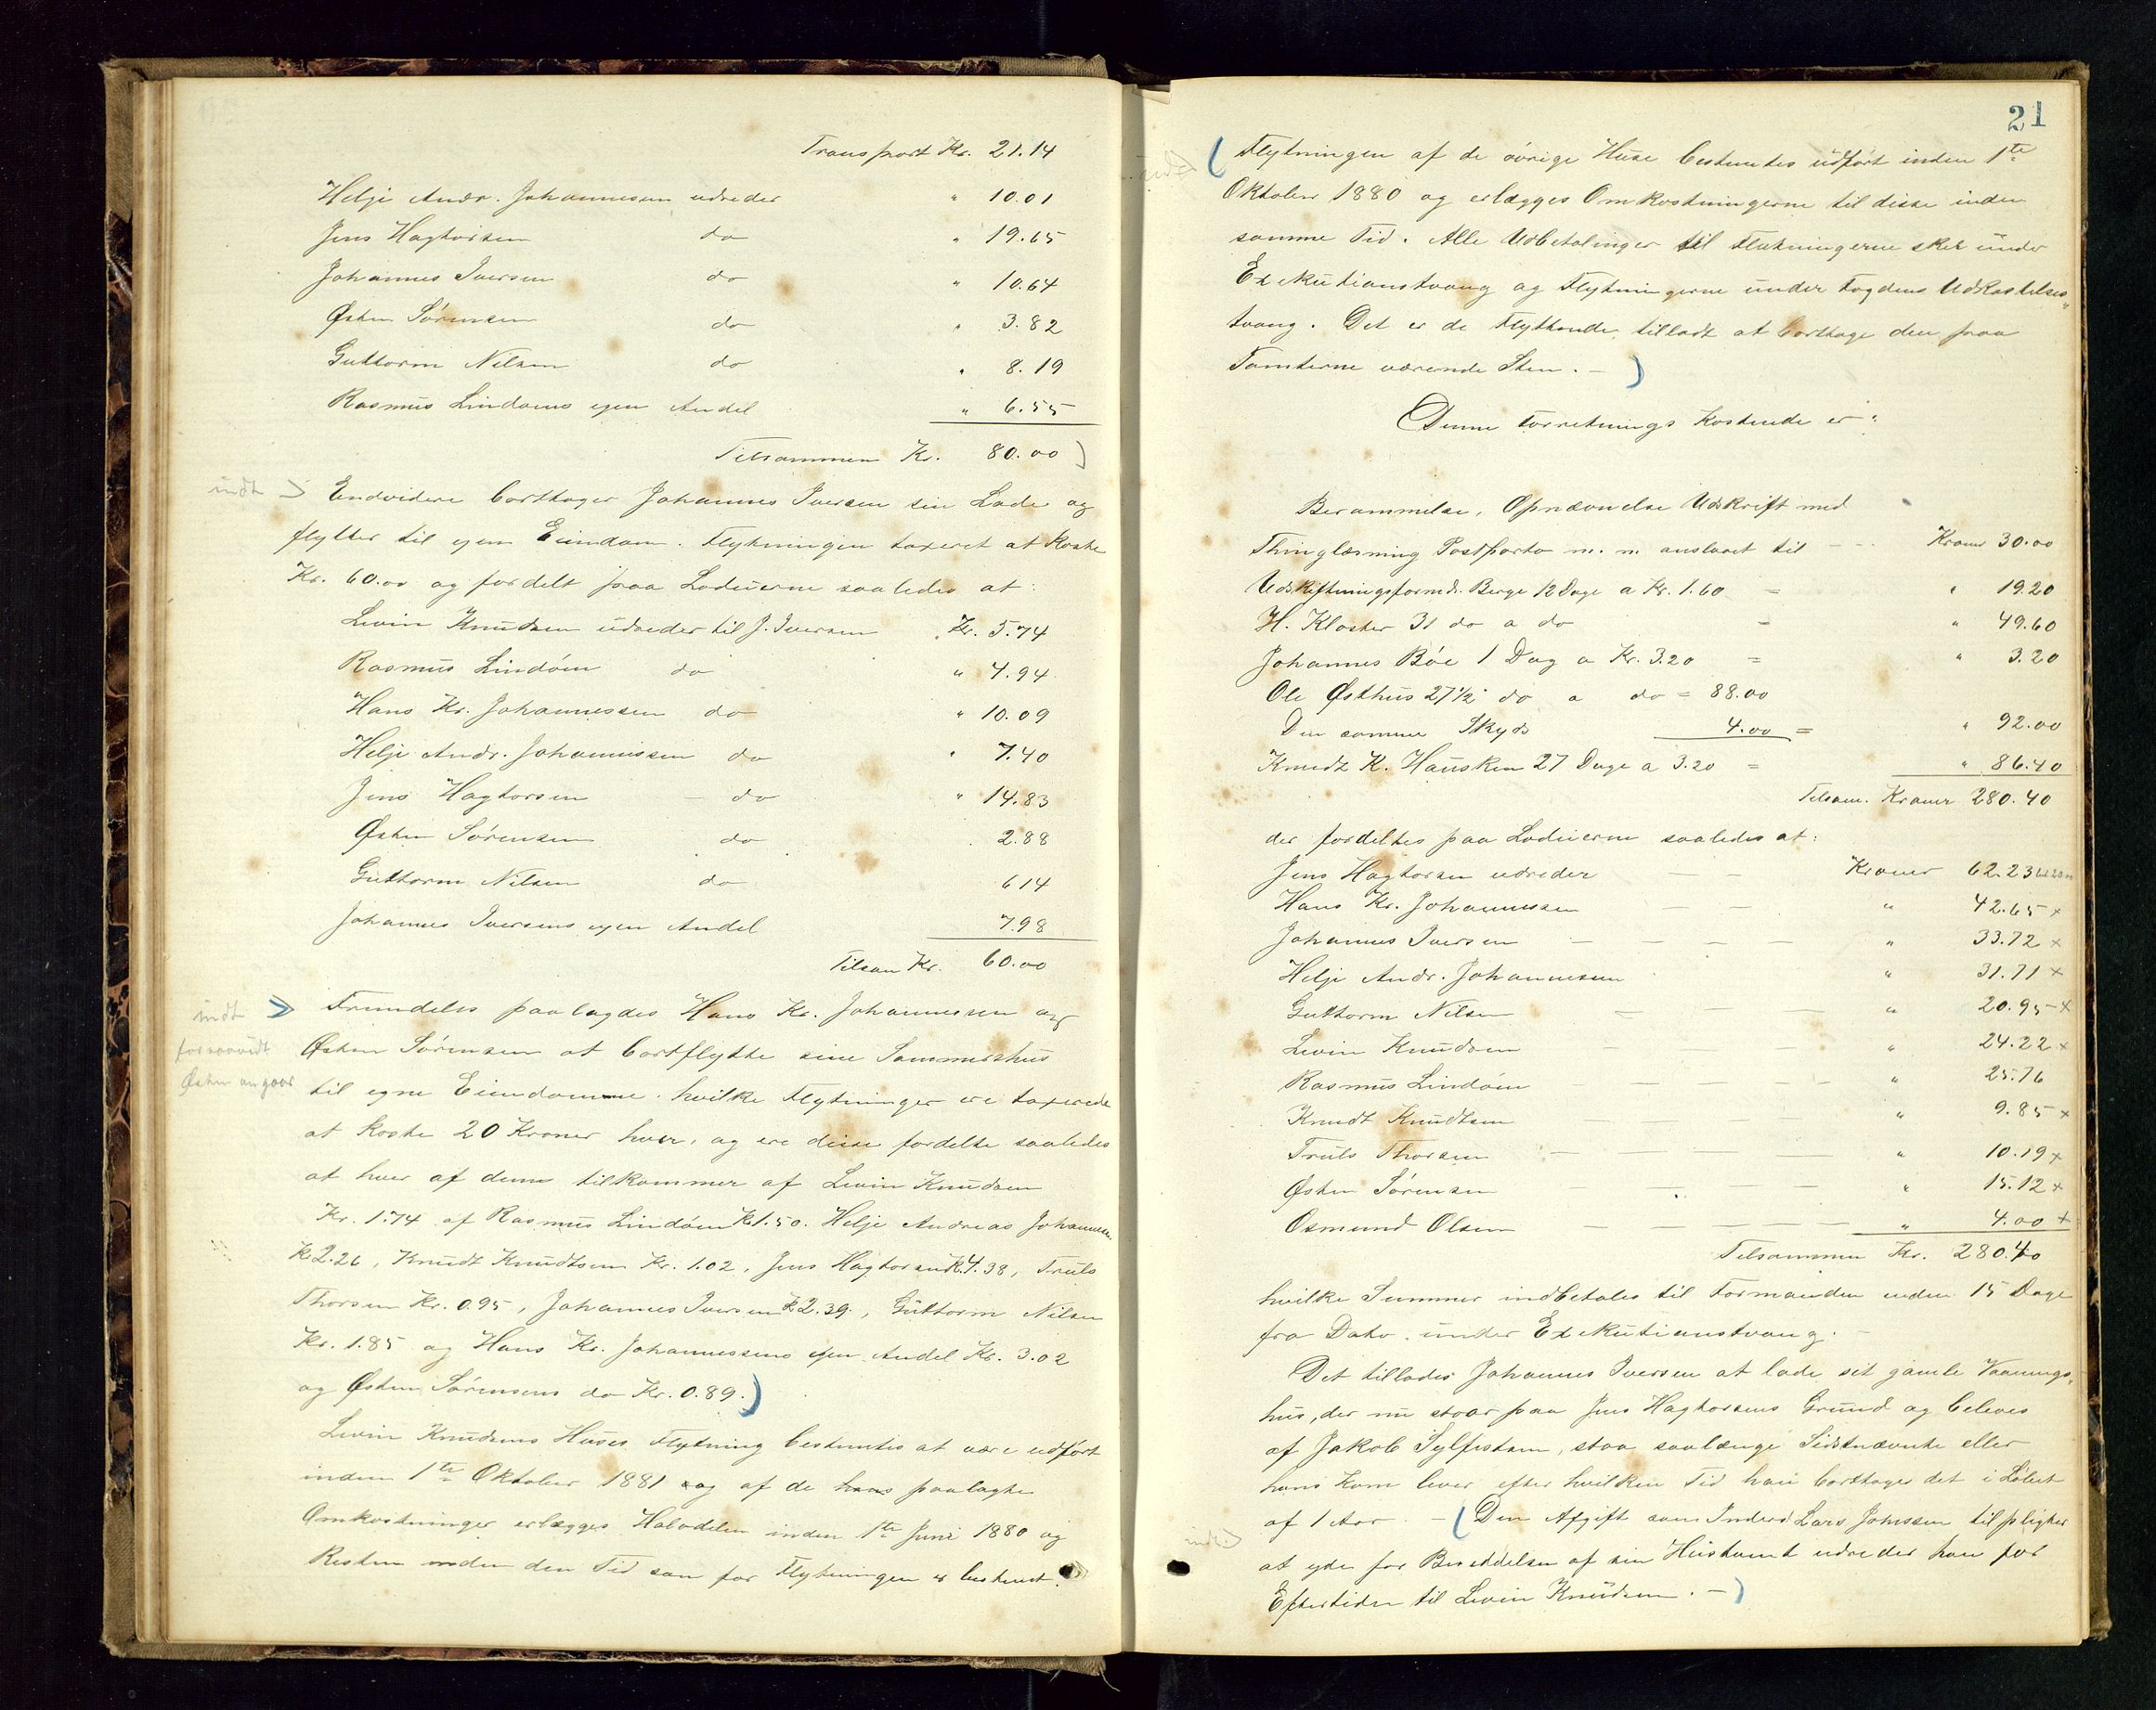 Transport Kr. 21.14
Helje Andr. Johannesen udreder " 10.01
Jens Hagtorsen do " 19.65
Johannes Iversen do " 10.64
Østen Sørensen do " 3.82
Guttorm Nilsen do " 8.19
Rasmus Lindøens egen Andel " 6.55
Tilsammen Kr. 80.00)
indt > Endvidere borttager Johannes Iversen sin Lade og
flytter til egen Eiendom. Flytningen taxeret at koste
Kr. 60.00 og fordelt paa Lodeierne saaledes at:
Levin Knudsen udreder til J. Iversen Kr. 5.74
Rasmus Lindøen do " 4.94
Hans Kr. Johannessen do " 10.09
Helje Andr. Johannissen do " 7.40
Jens Hagtorsen do " 14.83
Østen Sørensen do 2.88
Guttorm Nilsen do 6 14
Johannes Iversens egen Andel 7.98
Tilsam Kr. 60.00
indt > Fremdeles paalagdes Hans Kr. Johannessen og
forsaavidt Østen Sørensen at bortflytte sine Sommershus
Østen angaar til egne Eiendomme. hvilke Flytninger ere taxerede
at koste 20 Kroner hver, og ere disse fordelte saaledes
at hver af dem tilkommer af Levin Knudsen
Kr. 1.74 af Rasmus Lindøen K 1.50. Helje Andreas Johannesen
K 2.26, Knudt Knudtsen Kr. 1.02, Jens Hagtorsen K. 4.38, Truls
Thorsen Kr. 0.95, Johannes Iversen K 2.39, Guttorm Nilsen
Kr. 1.85 og Hans Kr. Johannessens egen Andel Kr. 3.02
og Østen Sørensens do Kr. 0.89.)
Levin Knudsens Huses Flytning bestemtes at være udført
inden 1te Oktober 1881 og af de hans paalagte
Omkostninger erlægges Halvdelen inden 1te Juni 1880 og
Resten inden den Tid som for Flytningen er bestemt.
21
(Flytningen af de øvrige Huse bestemtes udført inden 1te
Oktober 1880 og erlægges Omkostningerne til disse inden
samme Tid. Alle Udbetalinger til Flytningerne sker under
Exekutionstvang og Flytningerne under Fogdens Udkastelses„
tvang. Det er de Flyttende tilladt at borttage den paa
Tomterne værende Sten. –)
Denne Forretnings Kostende er:
Berammelse, Opnævnelse Udskrift med
Thinglæsning Postporto m. m. anslaaet til – – Kroner 30.00
Udskiftningsformd. Berge 12 Dage a Kr. 1.60 = " 19.20
H. Kloster 31 do a do = " 49.60
Johannes Bøe 1 Dag a Kr. 3.20 = " 3.20
Ole Østhus 27½ do a do = 88.00
Den samme Skyds 4.00 = " 92.00
Knudt K. Hausken 27 Dage a 3.20 = " 86.40
Tilsam. Kroner 280.40
der fordeltes paa Lodeierne saaledes at:
Jens Hagtorsen udreder – – Kroner 62.23
Hans Kr. Johannessen – – " 42.65 x
Johannes Iversen – – – – " 33.72 x
Helje Andr. Johannesen " 31.71 x
Guttorm Nilsen – – – " 20.95 x
Levin Knudsen – – – " 24.22 x
Rasmus Lindøen – – – – " 25.76
Knudt Knudtsen – – – – " 9.85 x
Truls Thorsen – – – – " 10.19 x
Østen Sørensen – – – " 15.12 x
Osmund Olsen – – – – " 4.00 x
Tilsammen Kr. 280.40
hvilke Summer indbetales til Formanden inden 15 Dage
fra Dato under Exekutionstvang. –
Det tillades Johannes Iversen at lade sit gamle Vaanings„
hus, der nu staar paa Jens Hagtorsens Grund og beboes
af Jakob Sylfestsen, staa saalænge Sidstnævnte eller
hans Kone lever efter hvilken Tid han borttager det i Løbet
af 1 Aar. – (Den Afgift som Inders Lars Johnsen tilpligtes
at yde for Benyttelsen af sin Hustomt udreder han for
Eftertiden til Levin Knudsen. –)